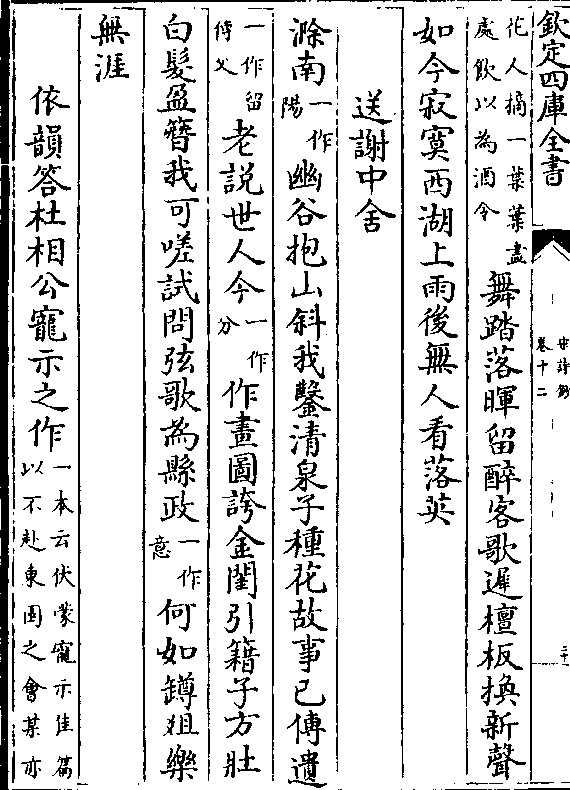 欽定四庫全書
宋詩鈔
卷十二
花人摘一葉葉盡
處飲以為酒令
舞踏落暉留醉客歌遲檀板換新聲
如今寂寞西湖上雨後無人看落英
送謝中舍
滁南一作陽幽谷抱山斜我鑿清泉子種花故事已傳遺
一作留傳父老説世人今一作分作畫圖誇金閨引籍子方壯
白髮盈簪我可嗟試問弦歌為縣政一作意何如罇俎樂
無涯
依韻答杜相公寵示之作一本云伏蒙寵示佳篇
以不赴東園之會某亦